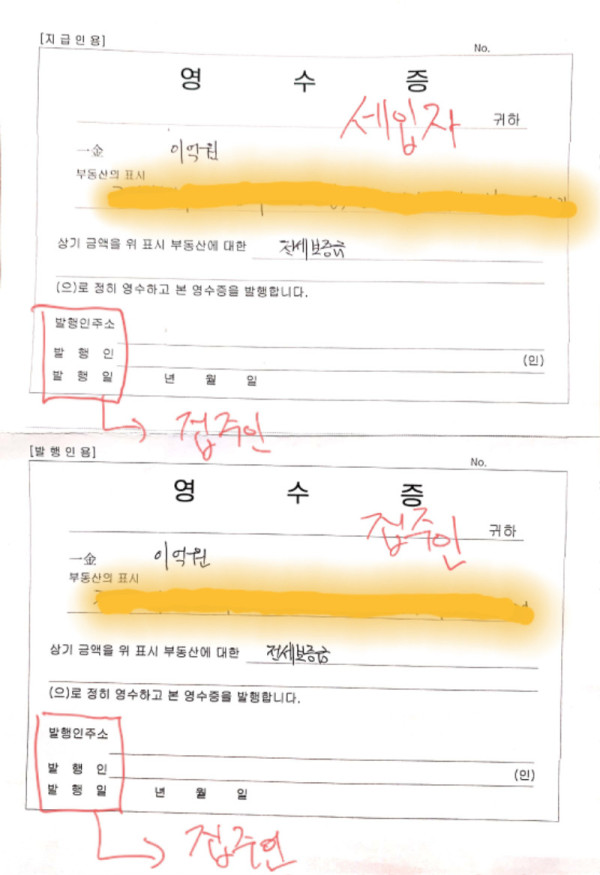 [지급인용]
No.
영 수 증
세입자 귀하
一金 이억원
부동산의 표시
상기 금액을 위 표시 부동산에 대한 전세보증금
(으)로 정히 영수하고 본 영수증을 발행합니다.
발행인주소
발 행 인 (인)
발 행 일 년 월 일
집주인
[발행인용]
No.
영 수 증
집주인 귀하
一金 이억원
부동산의 표시
상기 금액을 위 표시 부동산에 대한 전세보증금
(으)로 정히 영수하고 본 영수증을 발행합니다.
발행인주소
발 행 인 (인)
발 행 일 년 월 일
집주인